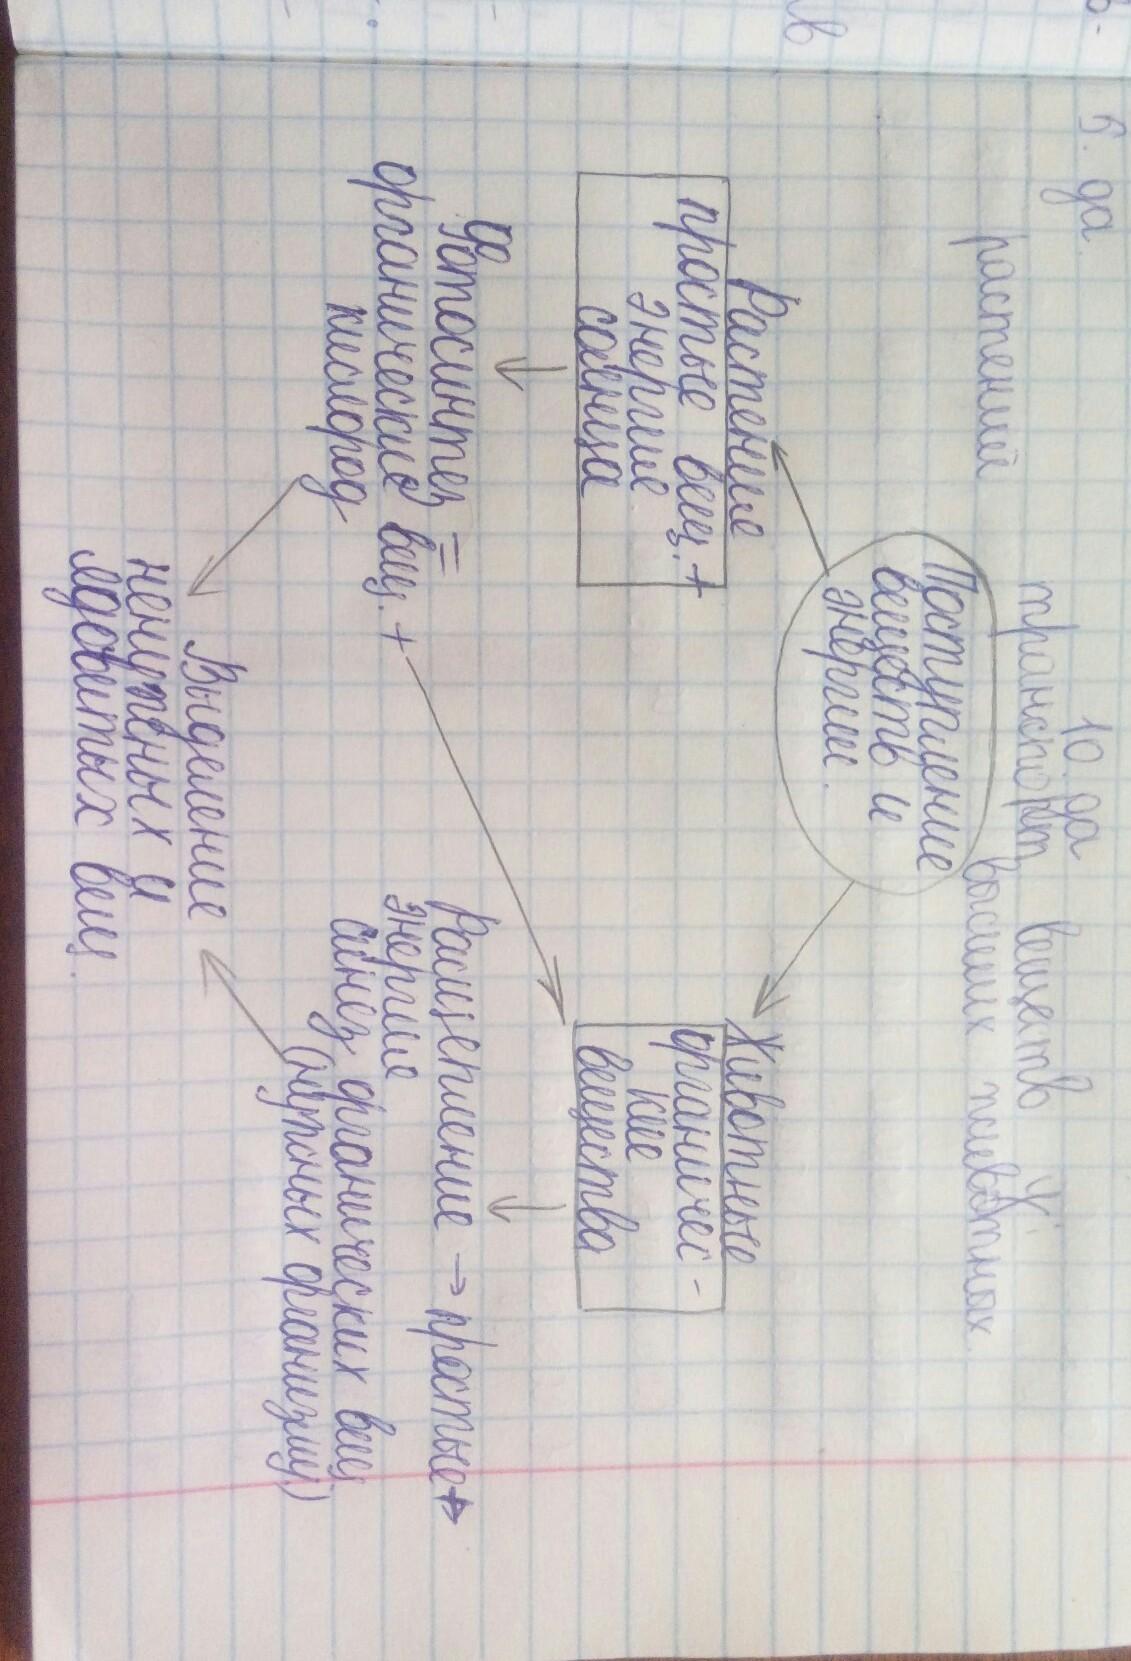 5. да.
10. да
транспорт веществ у
растений
высших животных
Поступление
веществ и
энергии.
Растение
простые вещ. +
энергия
солнца
Животные
органичес-
кие
вещества
Фотосинтез =
органические вещ. +
кислород
Расщепление → простые+
энергия
синез органических вещ
(нужных организму)
Выделение
ненужных и
ядовитых вещ.